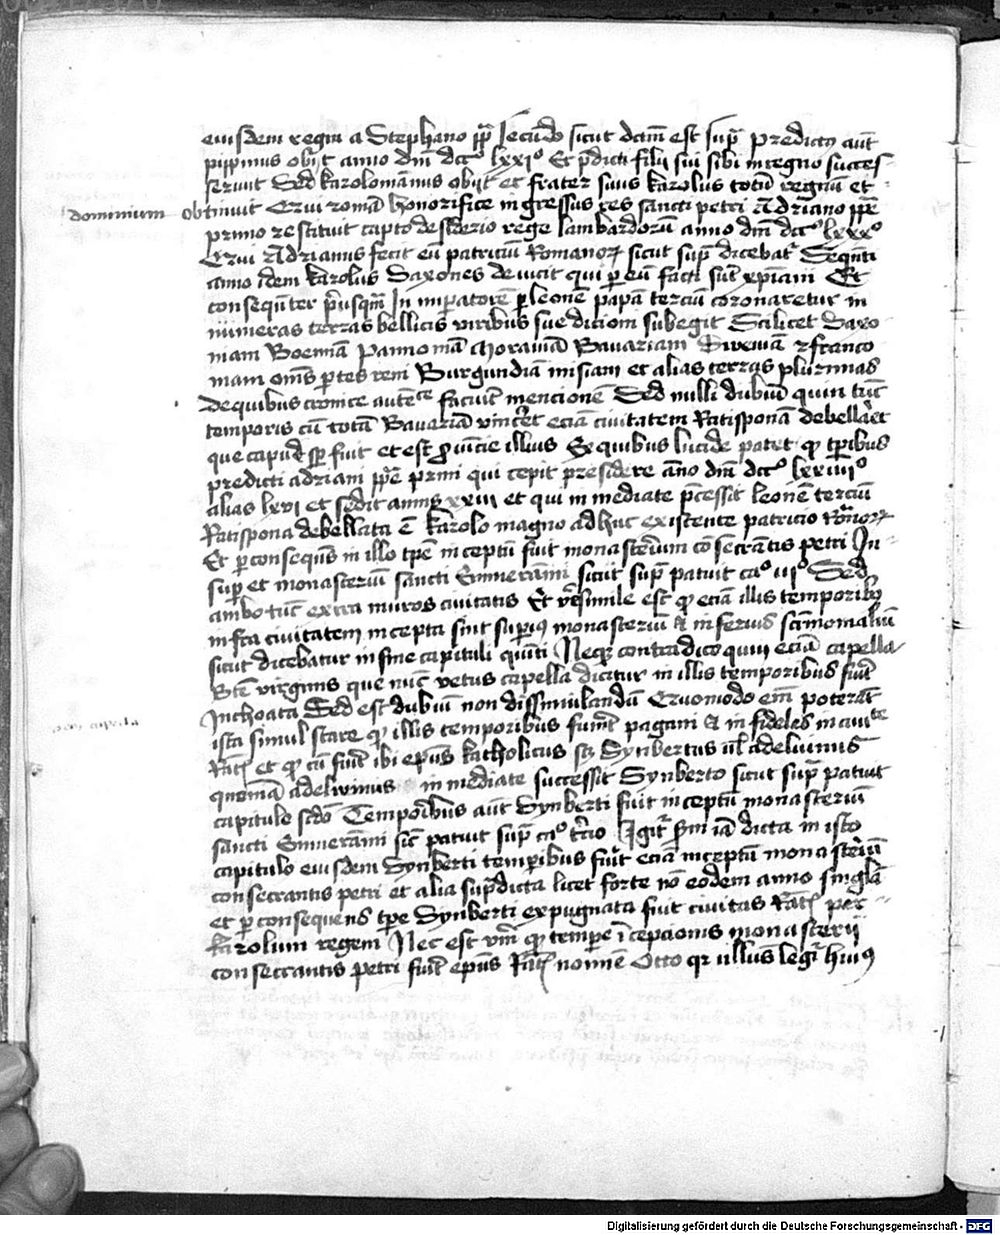 eiusdem regni a Stephano pp̄ secūdo sicut dc̄m est sup̄ predictꝰ aut̄
pippinus obijt anno dn̄i dccͦ lxxiͦ Et p̄dicti filij sui sibi in regno succes
serunt Sed karolomānus obijt et frater suus karolus totū regnū et
dominium obtinuit Qui romā honorifice ingressus res sancti petri Adriano pp̄e
primo restituit capto desiderio rege lambardorū anno dn̄i dccͦ lxxxͦ
Qui Adrianus fecit eū patriciū Romanoꝝ sicut sup̄ dicebat᷑ Sequēti
anno idem karolus Saxones deuicit qui ꝑ eū facti sūt xp̄iani Et
consequēter p̄usqm̄ In imꝑatorē ꝑ leonē papā terciū coronaretur in
numeras terras bellicis viribus sue dicioni subegit Scilicet Saxo
niam Boemiā Pannoniā Morauiā Bauariam Sweuiā ⁊ franco
niam om̄s ꝑtes reni Burgundiā misiam et alias terras plurimas
de quibus cronice autētice faciūt mencionē Sed nulli dubiū quin tūc
temporis cū totā Bauariā vinceret eciā ciuitatem Ratisponā debellaret
que capud sꝑ fuit et est ꝓuincie illius Ex quibus lucide patet ꝙ tp̄ribus
predicti adriani pp̄e primi qui cepit presidere āno dn̄i dccͦ lxxiiiiͦ
alias lxvi et sedit annis xxiii et qui in mediate p̄cessit leonē terciū
Ratispona debellata ē karolo magno adhuc existente patricio Rōanoꝝ
Et ꝑ consequēs in illo tp̄e inceptū fuit monasteriū cōsecrantis petri In
suꝑ et monasteriū sancti Emmerāmi sicut sup̄ patuit caͦ iiiͦ Sed
ambo tūc extra muros ciuitatis Et v̄isimile est ꝙ eciā illis temporibꝫ
infra ciuitatem incepta sint supiꝰ monasteriū & inferius scīmonialiū
sicut dicebatur in fine capituli quīti Neqꝫ contradico quin eciā capella
Btē virginis que nūc vetus capella dicitur in illis temporibus fuit
Inchoata Sed est dubiū non dissimilandū Quomodo em̄ poterāt
ista simul stare ꝙ illis temporibus fuerūt pagani & infideles in ciuite
Ratꝭ et ꝙ tūc fuit ibi ep̄us katholicus sꝫ Synbertus ul̄ adelwinus
quoniā adelwinus in mediate successit Synberto sicut sup̄ patuit
capitulo scd̄o Temporibus aut̄ Synberti fuit inceptū monasteriū
sancti Emmerāmi sic̄ patuit sup̄ caͦ t̄cio Igit᷑ sm̄ iā dicta in isto
capitulo eiusdem Synberti temꝑibus fuit eciā inceptū monasteriū
consecrantis petri et alia sup̄dicta licet forte nō eodem anno singl̄a
et ꝑ consequens tp̄e Synberti expugnata fuit ciuitas Ratꝭ per
karolum regem Nec est vm̄ ꝙ tempe īcepcionis monasterij
consecrantis petri fuit ep̄us Ratꝭ nomine Otto qr ullius legit᷑ huiꝰ